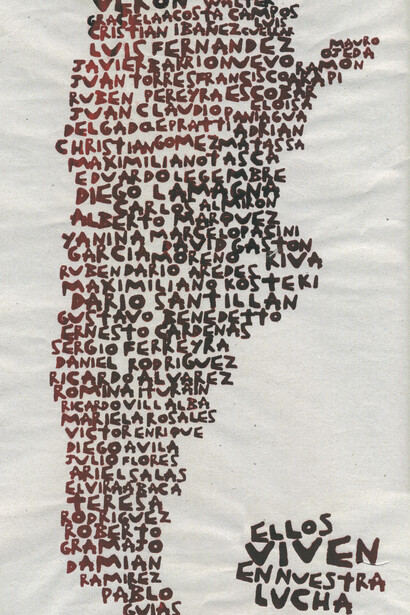 VERON WALTER
GRACIELA ACOSTA CAMPOS
CRISTIAN IBAÑEZ CUELLAR
LUIS FERNANDEZ
MAURO
OJEDA
JAVIER BARRIONUEVO RAMON
JUAN TORRES FRANCISCO ARAPI
RUBEN PEREYRA ESCOBAR
ELOISA
JUAN CLAUDIO PANIAGUA
DELGADO LEPRATTI ADRIAN
CHRISTIAN GOMEZ MATASSA
MAXIMILIANO TASCA
EDUARDO LEGEMBRE
DIEGO LAMAGNA
CARLOS ALMIRON
ALBERTO MARQUEZ
YANINA MARCELO PACINI
GARCIA DAVID GASTON
MORENO RIVA
RUBEN DARIO AREDES
MAXIMILIANO KOSTEKI
DARIO SANTILLAN
GUSTAVO BENEDETTO
ERNESTO CARDENAS
SERGIO FERREYRA
DANIEL RODRIGUEZ
RICARDO ALVAREZ
ROMINA ITURAIN
RICARDO VILLALBA
MARIELA ROSALES
VISTOR ENRIQUE
DIEGO AVILA
JULIO FLORES
ARIEL SALAS
ELVIRA ABACA
TERESA
RODRIGUEZ
ROBERTO
GRAMAJO
DAMIAN
RAMIREZ
PABLO
GUIAS
ELLOS
VIVEN
EN NUESTRA
LUCHA